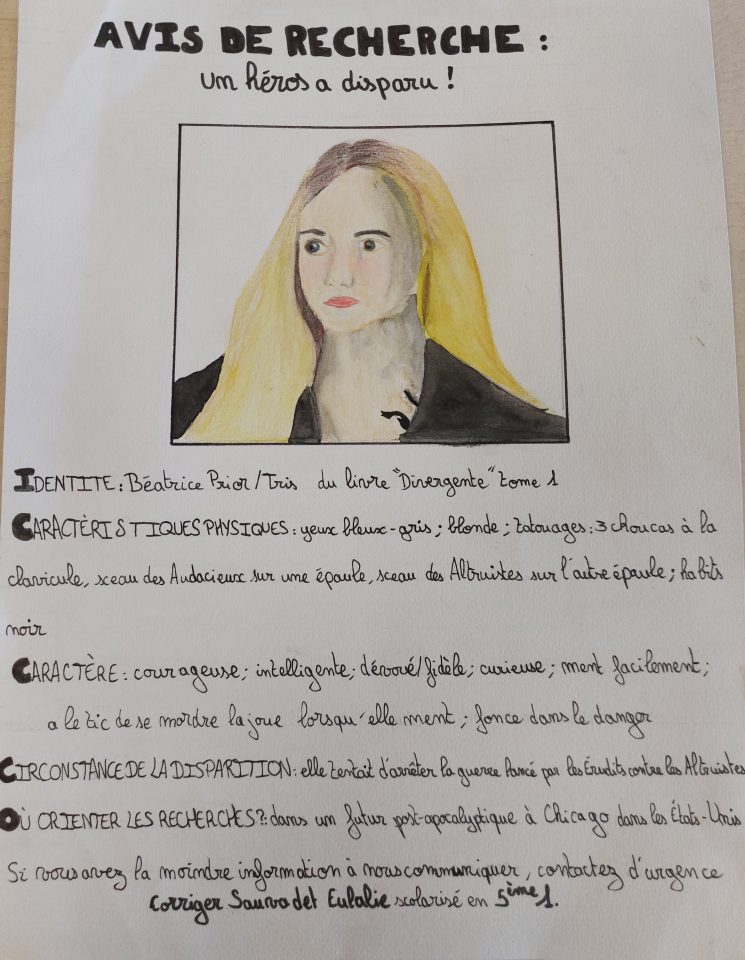 AVIS DE RECHERCHE :
un héros a disparu !
IDENTITE : Béatrice Prior / Tris du livre "Divergente" tome 1
CARACTÈRISTIQUES PHYSIQUES : yeux bleux-gris ; blonde ; tatouages : 3 choucas à la
clavicule, sceau des Audacieux sur une épaule, sceau des Altruistes sur l'autre épaule ; habits
noir
CARACTÈRE : courageuse ; intelligente ; dévoué/fidèle ; curieuse ; ment facilement ;
a le tic de se mordre la joue lorsqu'elle ment ; fonce dans le danger
CIRCONSTANCE DE LA DISPARITION : elle tentait d'arrêter la guerre lancé par les Érudits contre les Altruistes
OÙ ORIENTER LES RECHERCHES ? : dans un futur post-apocalyptique à Chicago dans les États-Unis
Si vous avez la moindre information à nous communiquer, contactez d'urgence
Corriger Sauvadet Eulalie scolarisé en 5ème 1.